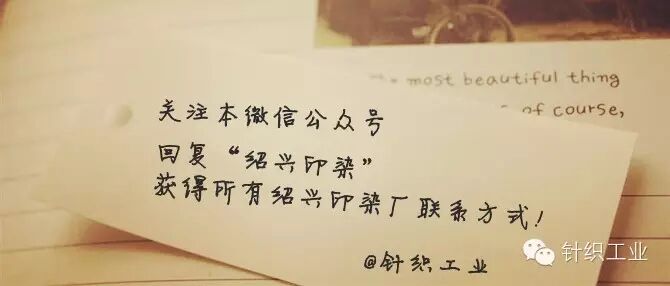 most beautiful thing
of course,
关注本微信公众号
回复“绍兴印染”
获得所有绍兴印染厂联系方式!
@针织工业
针织工业